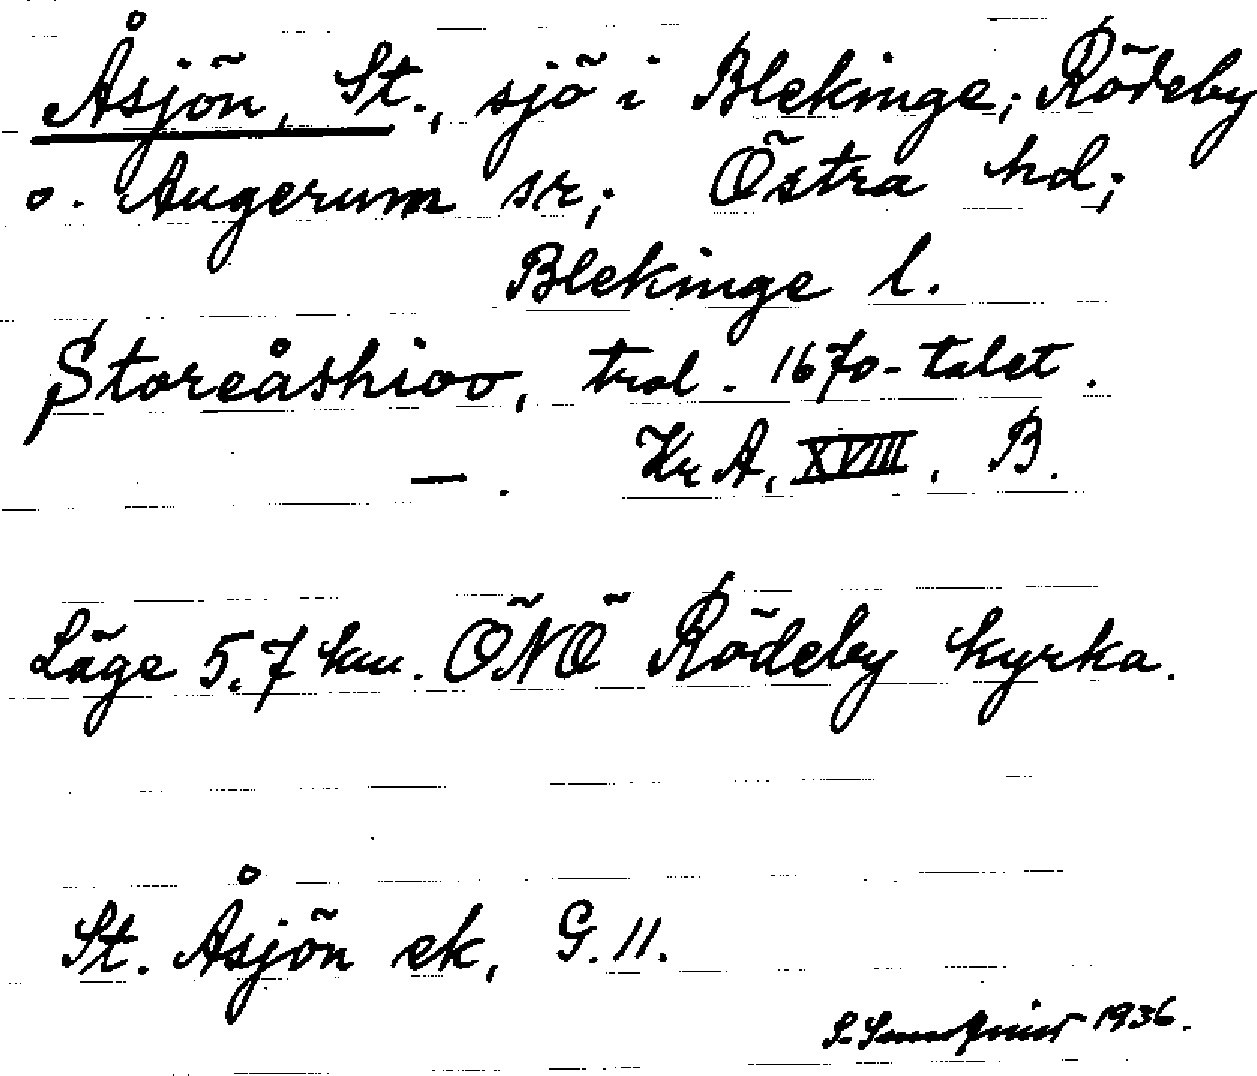 Åsjön, St., sjö i Blekinge; Rödeby
o. Augerum sr; Östra hd;
Blekinge l.
Storeåshioo, trol. 1670-talet.
—. KrA, XVIII, B.
Läge 5.7 km. ÖNÖ Rödeby kyrka.
St. Åsjön ek, G.11.
1936.